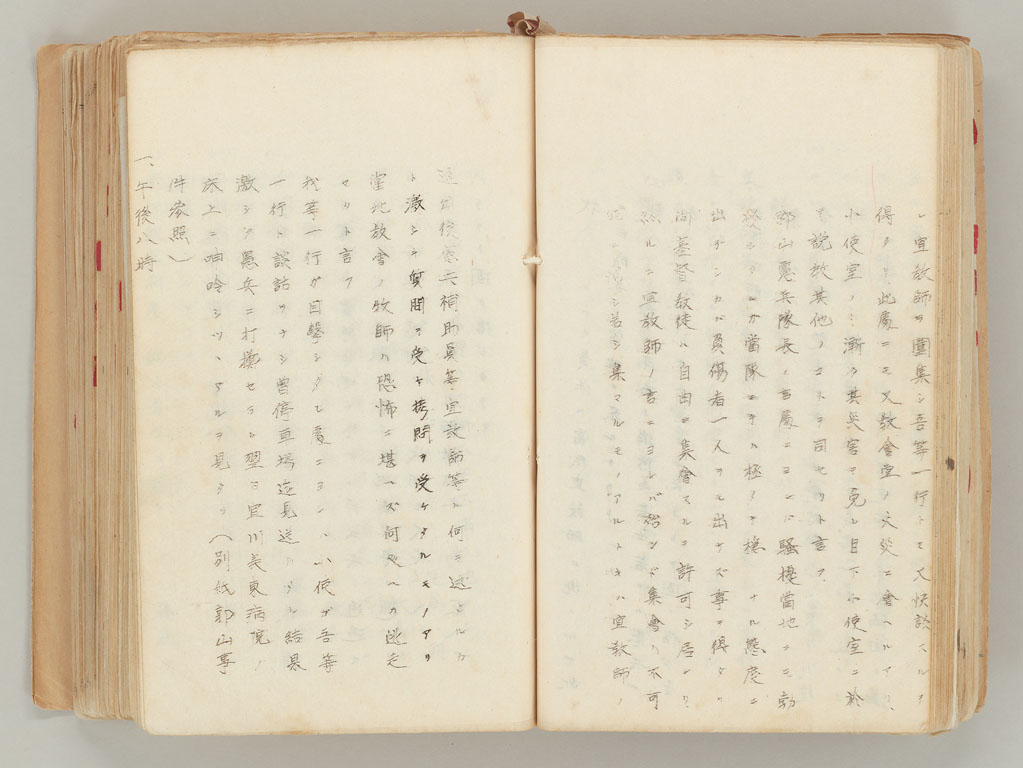 宣教師ヲ團集シ吾等一行トモ又快談スルヲ
得タリ此處ニモ又教會堂ノ火災ニ會ヘルアリ、
小使室ノミ漸ク其災害ヲ免レ目下小使室ニ於
テ説教其他ノコトヲ司セリト言フ
郭山憲兵隊長ノ言ニヨレバ騒擾當地ニモ勃
シガ當隊ニテハ極メテ穏ナル態度ニ
出デシガ負傷者一人ヲモ出サズ事ヲ得タリ
尚基督教徒ハ自由ニ集會スルヲ許可シ居レリ
然ルニ宣教師ノ言ニヨレバ殆ンド集會ハ不可
シ若シ集マルモノアルトキハ宣教師ノ
後憲兵補助員等宣教師等ハ何ヲ述ベシカ
ト激シキ質問ヲ受ケ拷問ヲ受ケタルモノアリ
當地教會ノ牧師ハ恐怖ニ堪ヘズ何處ヘカ逃走
セリト言フ
我等一行ガ目撃シタル處ニヨレバ小使ガ吾等
一行ト談話ヲナシ曽停車場迄見送リタル結果
激シク憲兵ニ打擲セラレ翌日宣川美東病院ノ
床上ニ呻吟シツヽアルヲ見タリ(別紙郭山事
件參照)
一、午後八時